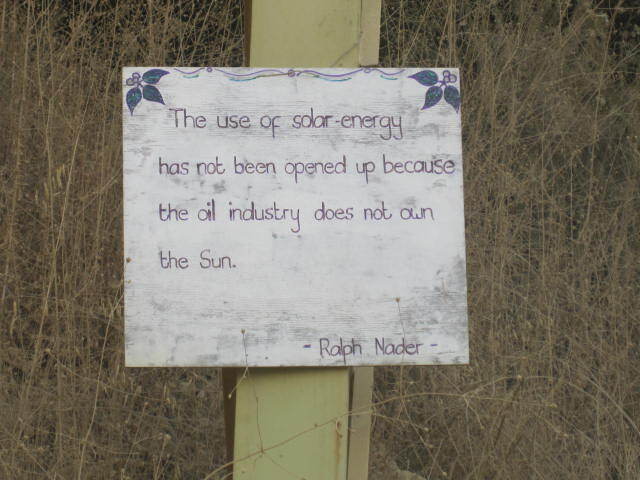 The use of solar-energy
has not been opened up because
the oil industry does not own
the Sun.
- Ralph Nader -